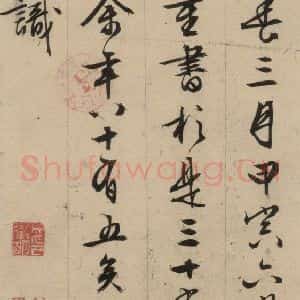 三月甲寅六
書於是三十
余年八十有五矣
識
Shufawang.cn